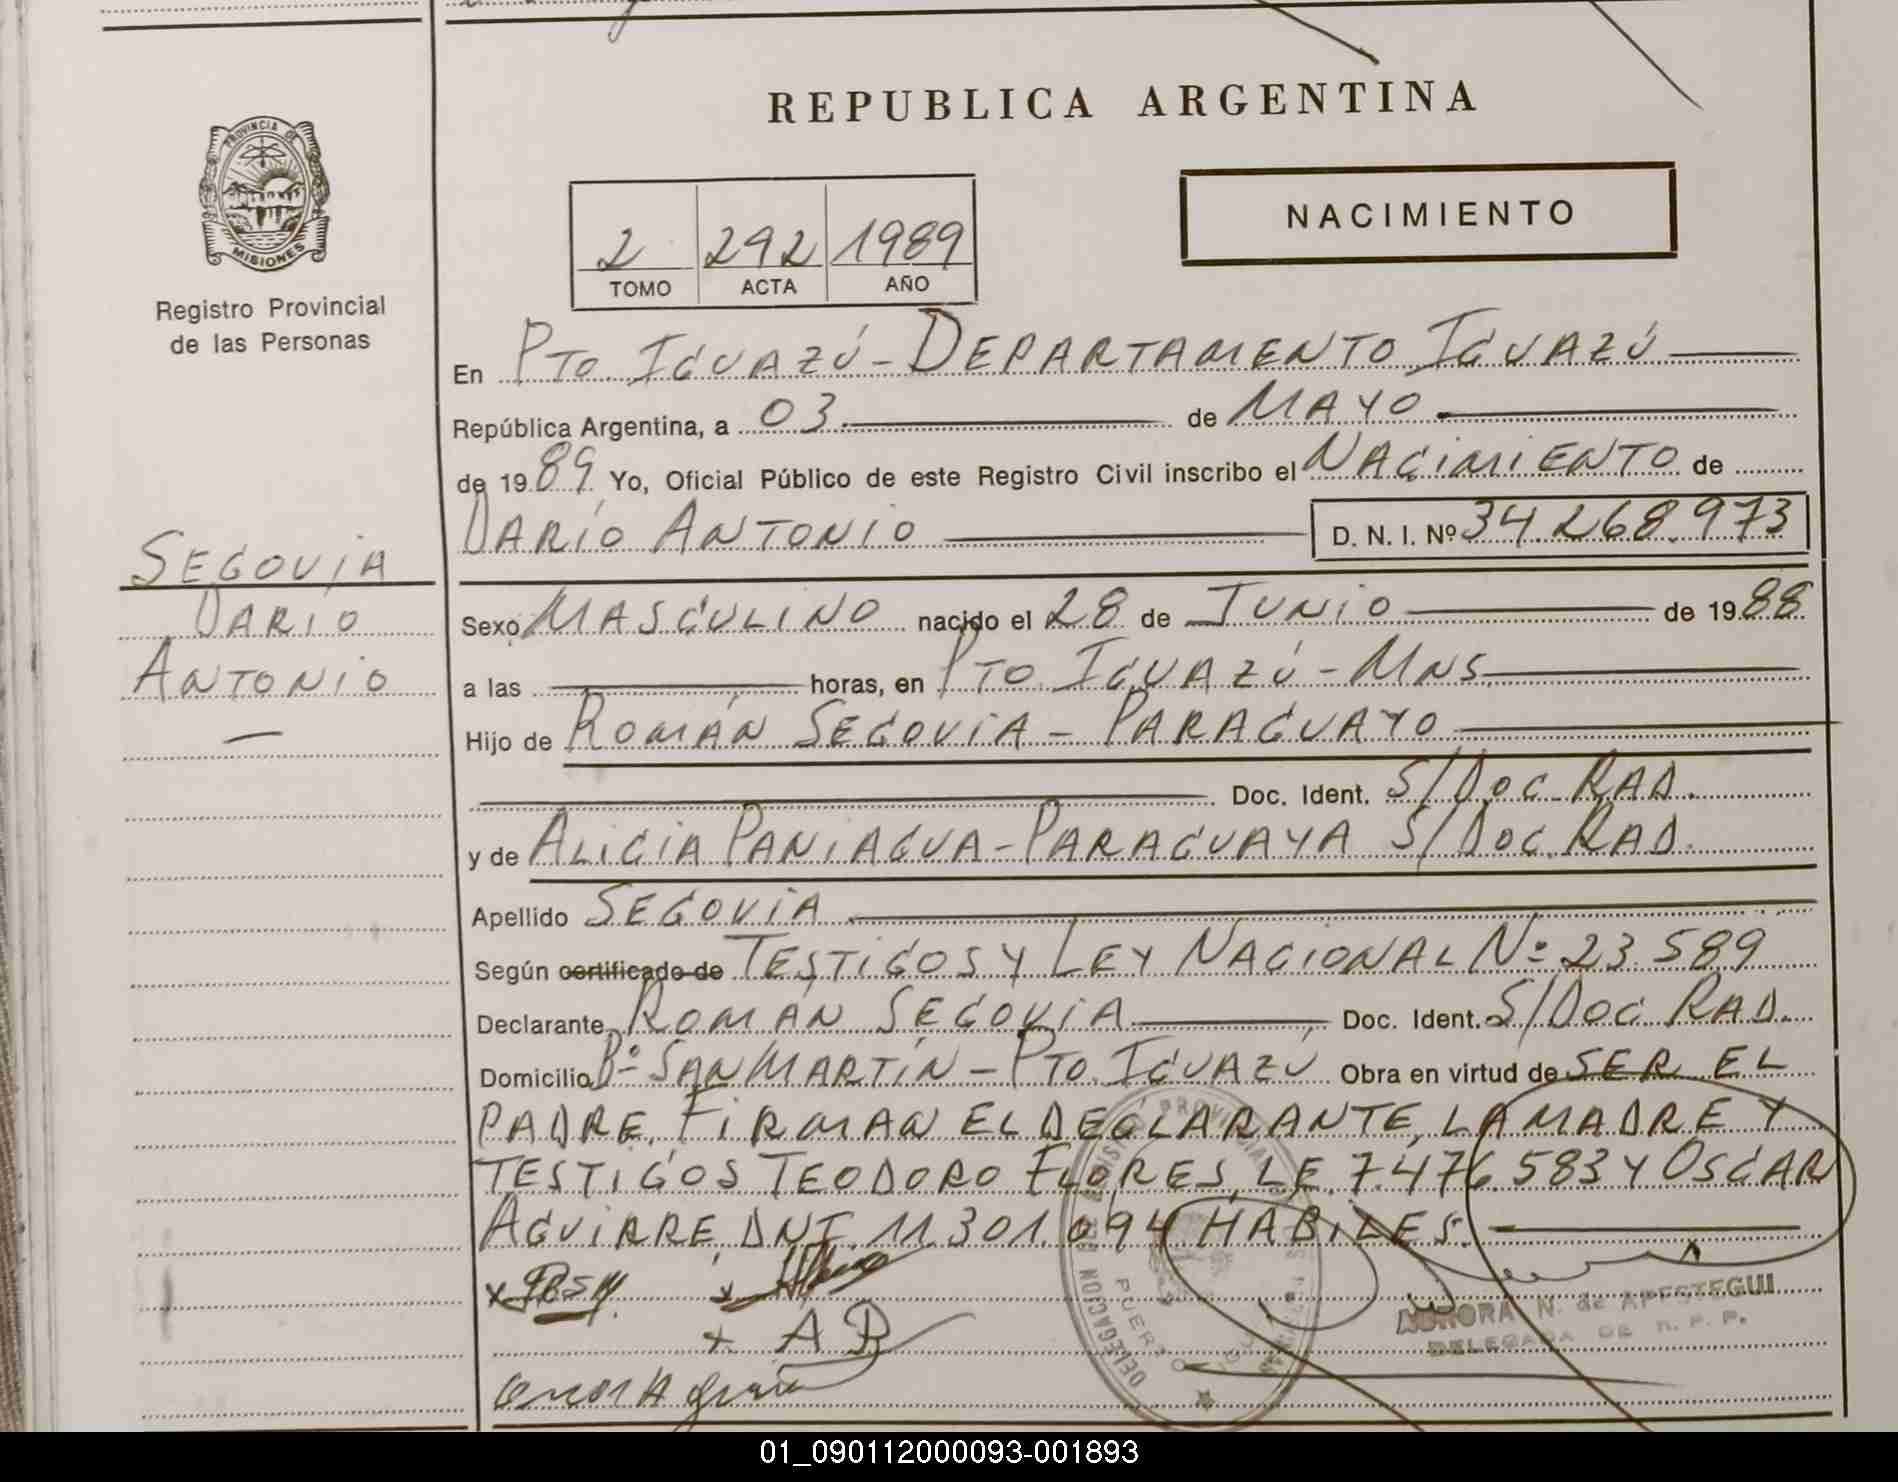 REPUBLICA ARGENTINA
PROVINCIA DE
MISIONES
Registro Provincial
de las Personas
NACIMIENTO
2 292 1989
TOMO ACTA AÑO
En PTO. IGUAZÚ - DEPARTAMENTO IGUAZÚ
República Argentina, a 03 de MAYO
de 1989 Yo, Oficial Público de este Registro Civil inscribo el NACIMIENTO de
DARÍO ANTONIO D. N. I. Nº 34.268.973
SEGOVIA
DARÍO
ANTONIO
Sexo MASCULINO nacido el 28 de JUNIO de 1988
a las horas, en PTO. IGUAZÚ - MNS
Hijo de ROMÁN SEGOVIA - PARAGUAYO
Doc. Ident. S/DOC. RAD.
y de ALICIA PANIAGUA - PARAGUAYA S/DOC. RAD.
Apellido SEGOVIA
Según certificado de TESTIGOS Y LEY NACIONAL Nº 23.589
Declarante ROMÁN SEGOVIA Doc. Ident. S/DOC RAD.
Domicilio Bº SAN MARTÍN - PTO. IGUAZÚ Obra en virtud de SER EL
PADRE. FIRMAN EL DECLARANTE, LA MADRE Y
TESTIGOS TEODORO FLORES, L.E. 7.476.583 Y OSCAR
AGUIRRE, DNI. 11.301.094 HABILES.
AURORA N. de APESTEGUI
DELEGADA DE R. P. P.
x A B
01_090112000093-001893